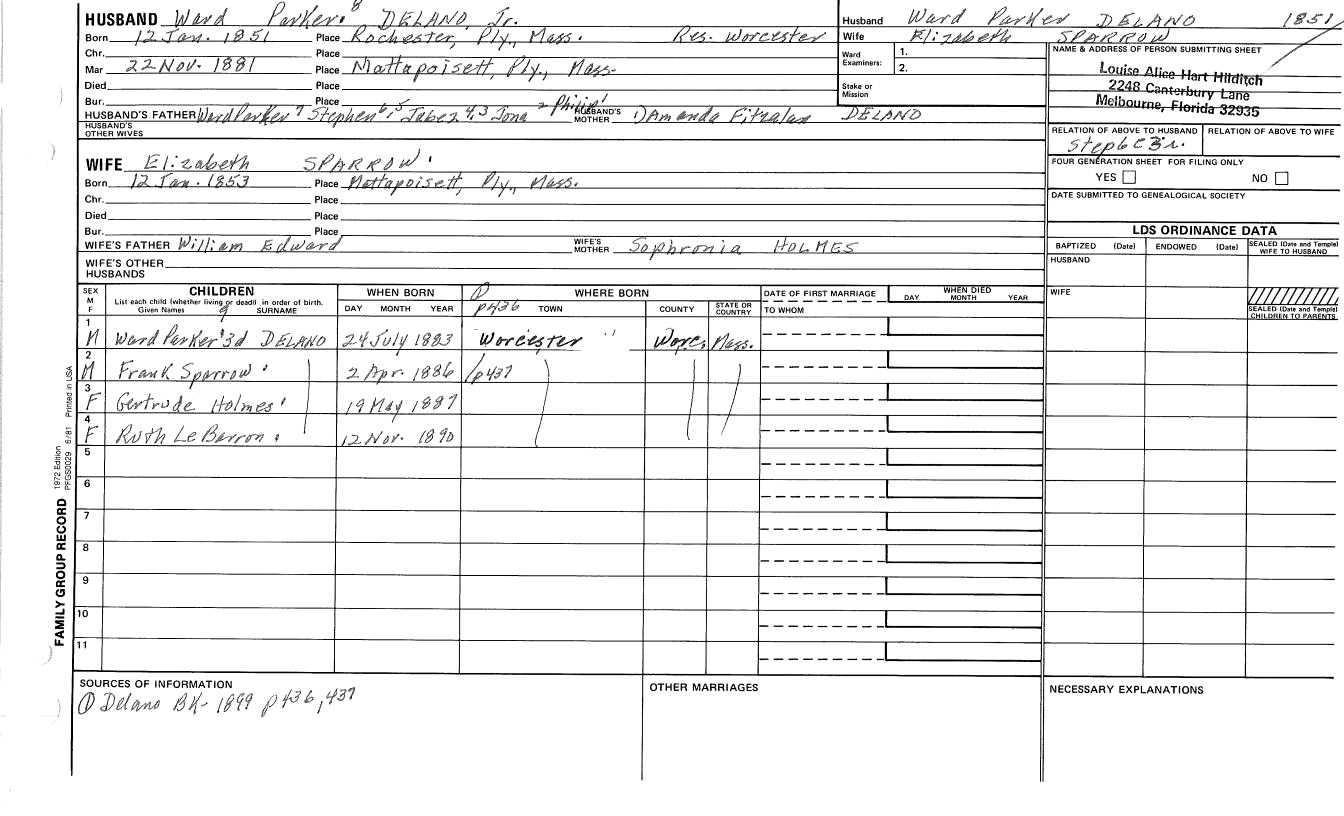 HUSBAND Ward Parker 8 DELANO, Jr.
Born 12 Jan. 1851 Place Rochester, Ply., Mass. Res. Worcester
Chr. Place
Mar 22 Nov. 1881 Place Mattapoisett, Ply., Mass.
Died Place
Bur. Place
HUSBAND'S FATHER Ward Parker 7 Stephen 6, 5 Jabez 4, 3 Jona 2 Philip 1 HUSBAND'S MOTHER Amanda Fitzalan DELANO
HUSBAND'S OTHER WIVES
WIFE Elizabeth SPARROW
Born 12 Jan. 1853 Place Mattapoisett, Ply., Mass.
Chr. Place
Died Place
Bur. Place
WIFE'S FATHER William Edward WIFE'S MOTHER Sophronia HOLMES
WIFE'S OTHER HUSBANDS
Husband Ward Parker DELANO 1851
Wife Elizabeth SPARROW
Ward Examiners: 1.
2.
Stake or Mission
NAME & ADDRESS OF PERSON SUBMITTING SHEET
Louise Alice Hart Hilditch
2248 Canterbury Lane
Melbourne, Florida 32935
RELATION OF ABOVE TO HUSBAND RELATION OF ABOVE TO WIFE
FOUR GENERATION SHEET FOR FILING ONLY
YES NO
DATE SUBMITTED TO GENEALOGICAL SOCIETY
LDS ORDINANCE DATA
BAPTIZED (Date) ENDOWED (Date) SEALED (Date and Temple) WIFE TO HUSBAND
HUSBAND
WIFE
SEALED (Date and Temple) CHILDREN TO PARENTS
SEX M F
CHILDREN
List each child (whether living or dead) in order of birth.
Given Names 9 SURNAME
WHEN BORN
DAY MONTH YEAR
① p436
WHERE BORN
TOWN COUNTY STATE OR COUNTRY
DATE OF FIRST MARRIAGE
TO WHOM
WHEN DIED
DAY MONTH YEAR
1 M Ward Parker 3d DELANO 24 July 1883 Worcester " Worc. Mass.
2 M Frank Sparrow 2 Apr. 1886 p437
3 F Gertrude Holmes 19 May 1887
4 F Ruth LeBarron 12 Nov. 1890
5
6
7
8
9
10
11
SOURCES OF INFORMATION
① Delano BK- 1899 p436, 437
OTHER MARRIAGES
NECESSARY EXPLANATIONS
FAMILY GROUP RECORD
1972 Edition
PFGS0029 6/81 Printed in USA